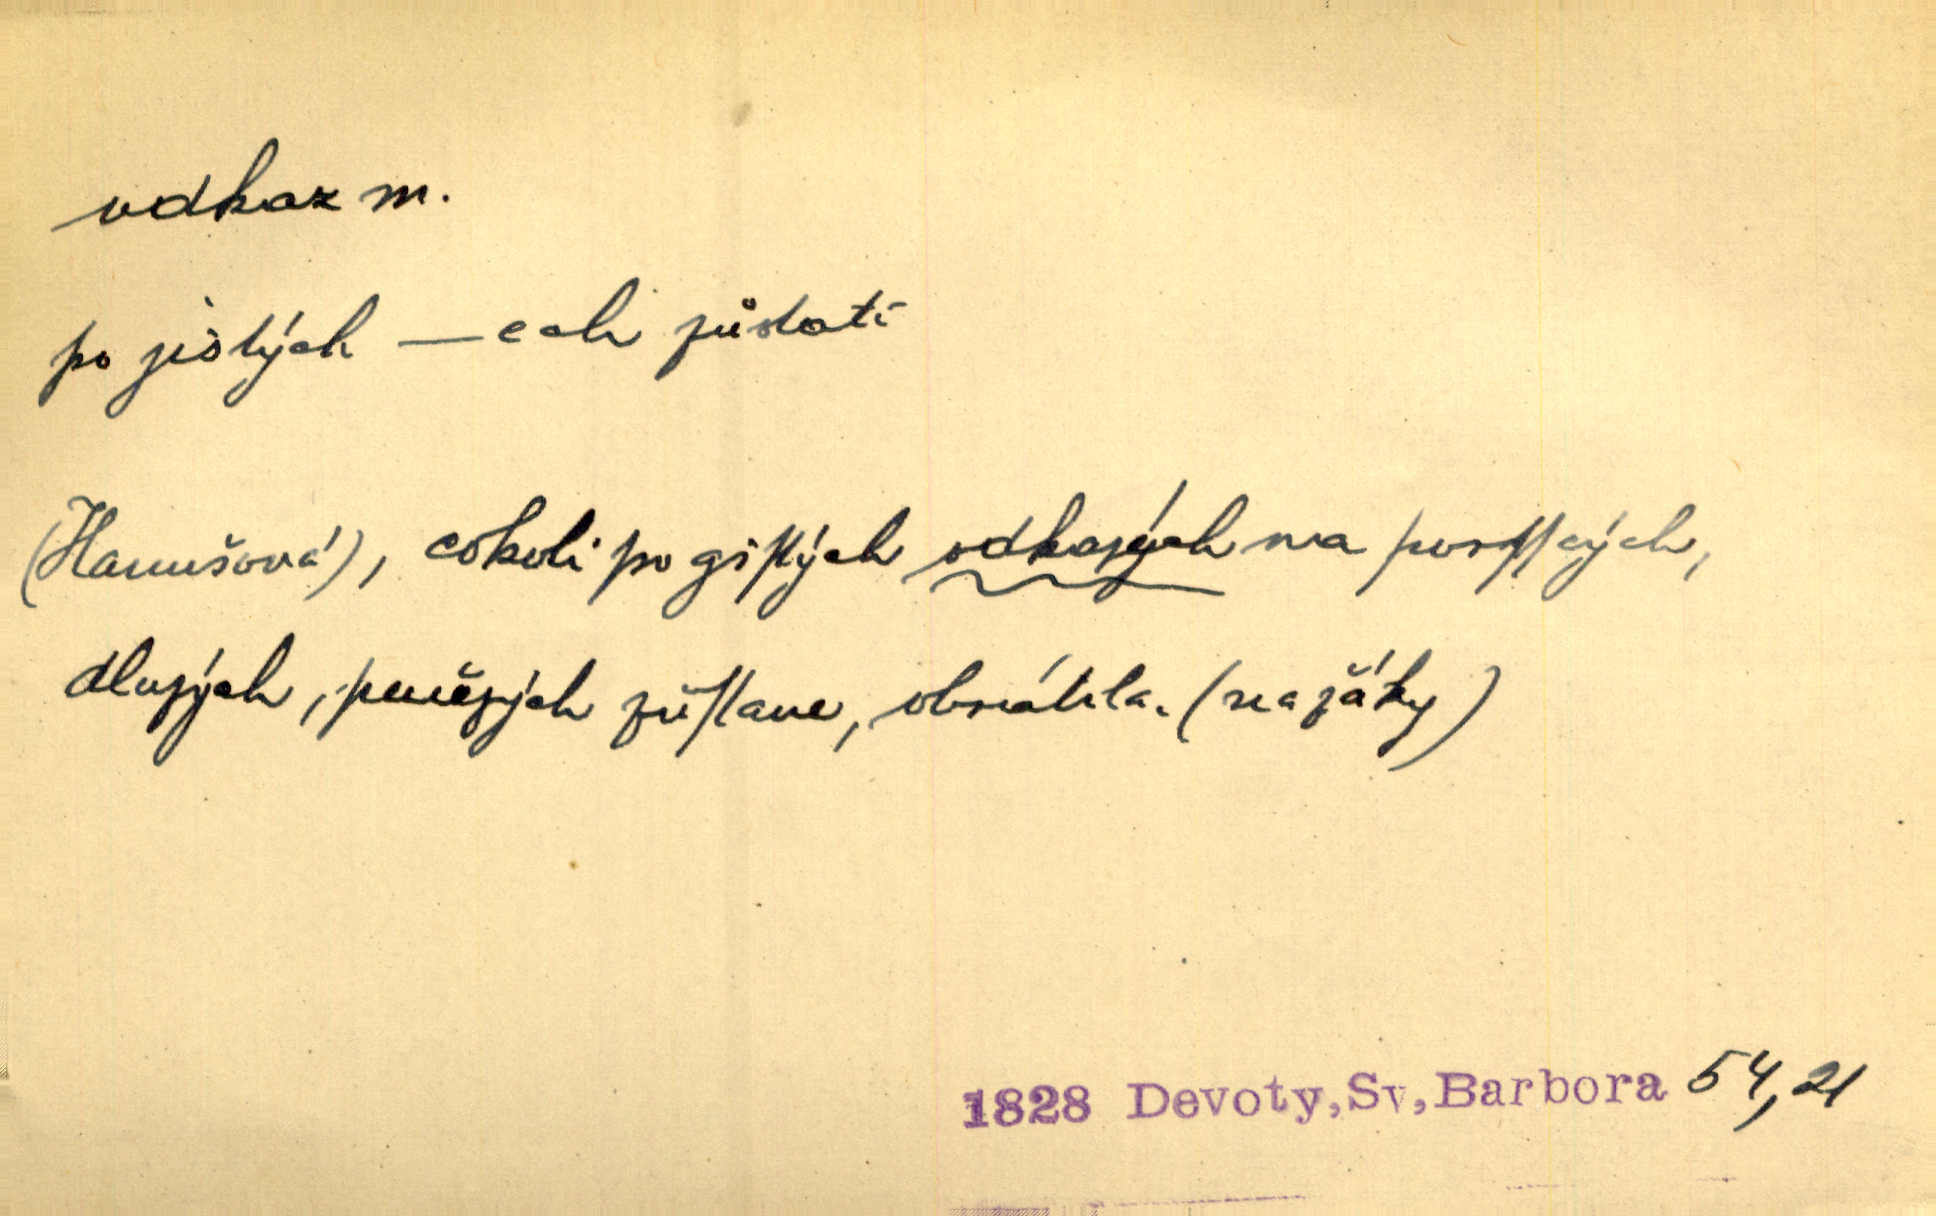 odkaz m.
po jistých — ech zůstati
(Hanušová), cokoli po gistých odkazých na
dluzých, penězých zůstane, obrátila. (na žáky)
1828 Devoty, Sv, Barbora 54,21